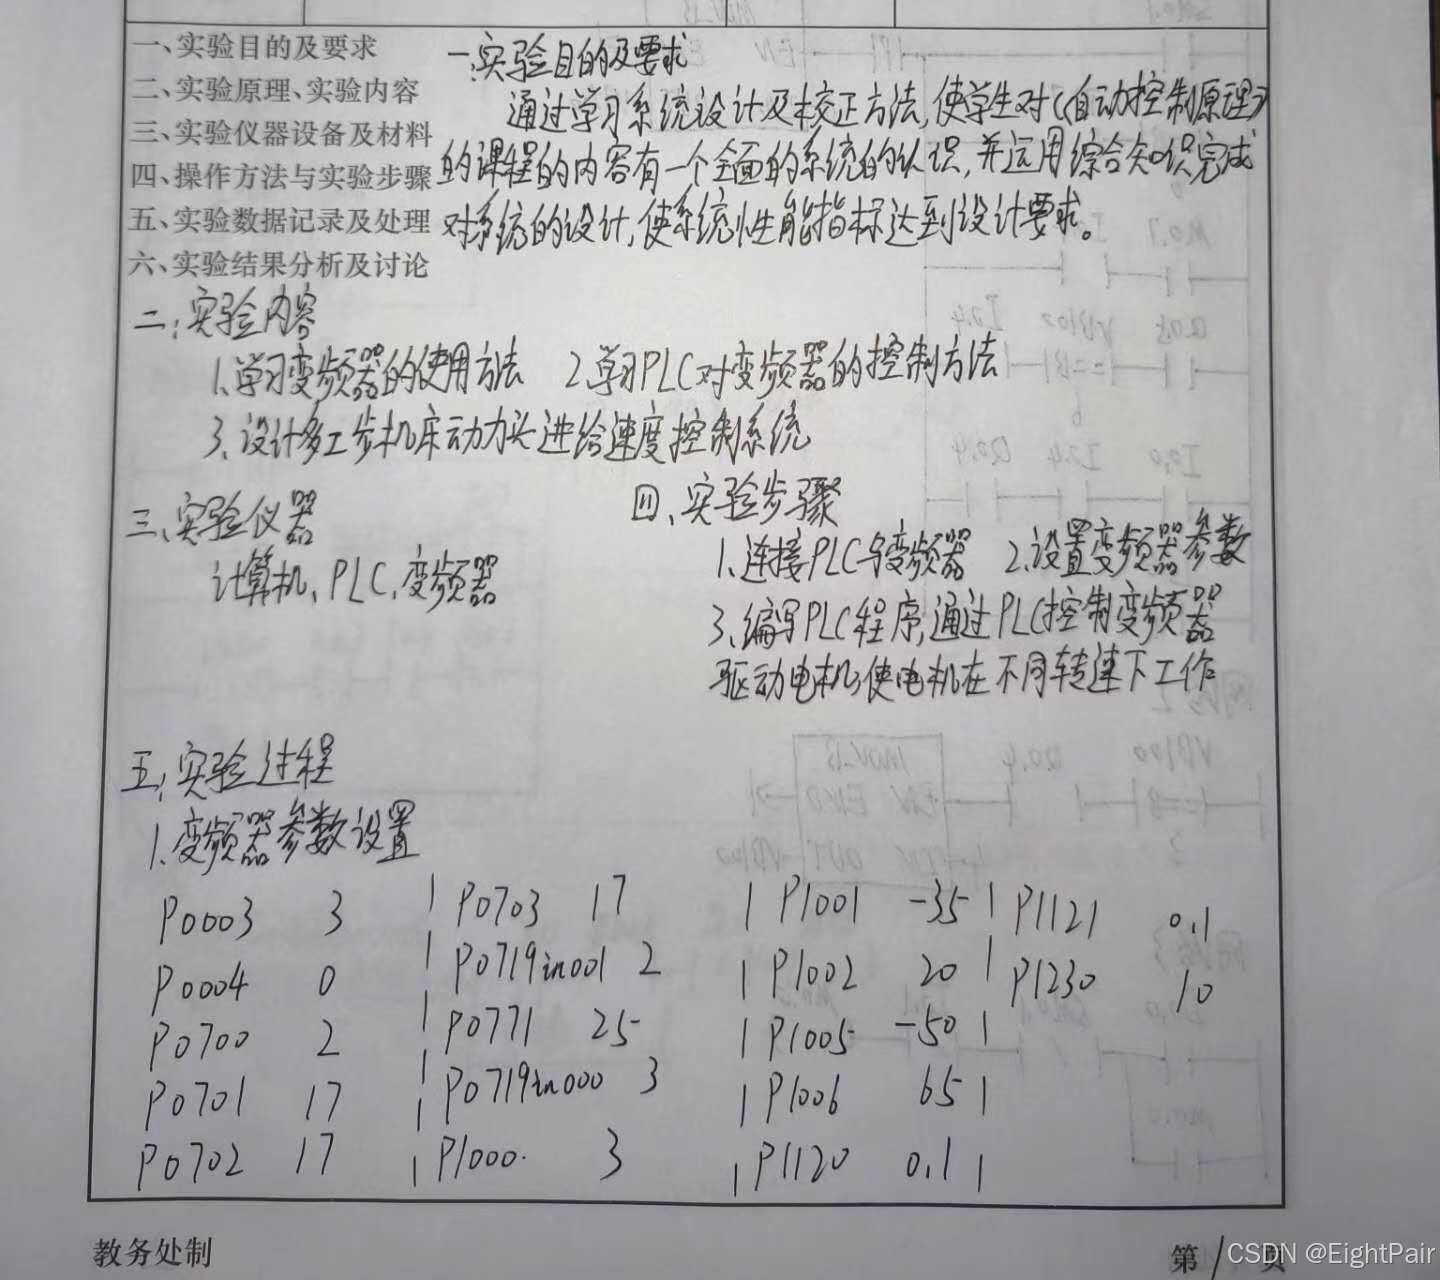 一、实验目的及要求
二、实验原理、实验内容
三、实验仪器设备及材料
四、操作方法与实验步骤
五、实验数据记录及处理
六、实验结果分析及讨论
一、实验目的及要求
通过学习系统设计及校正方法,使学生对《自动控制原理》
的课程的内容有一个全面的系统的认识,并运用综合知识完成
对系统的设计,使系统性能指标达到设计要求。
二、实验内容
1、学习变频器的使用方法 2、学习PLC对变频器的控制方法
3、设计多工步机床动力头进给速度控制系统
三、实验仪器
计算机、PLC、变频器
四、实验步骤
1、连接PLC与变频器 2、设置变频器参数
3、编写PLC程序,通过PLC控制变频器
驱动电机,使电机在不同转速下工作
五、实验过程
1、变频器参数设置
P0003 3 | P0703 17 | P1001 -35 | P1121 0.1
P0004 0 | P0719in001 2 | P1002 20 | P1230 10
P0700 2 | P0771 25 | P1005 -50 |
P0701 17 | P0719in000 3 | P1006 65 |
P0702 17 | P1000. 3 | P1120 0.1 |
教务处制
第 1 页
CSDN @EightPair